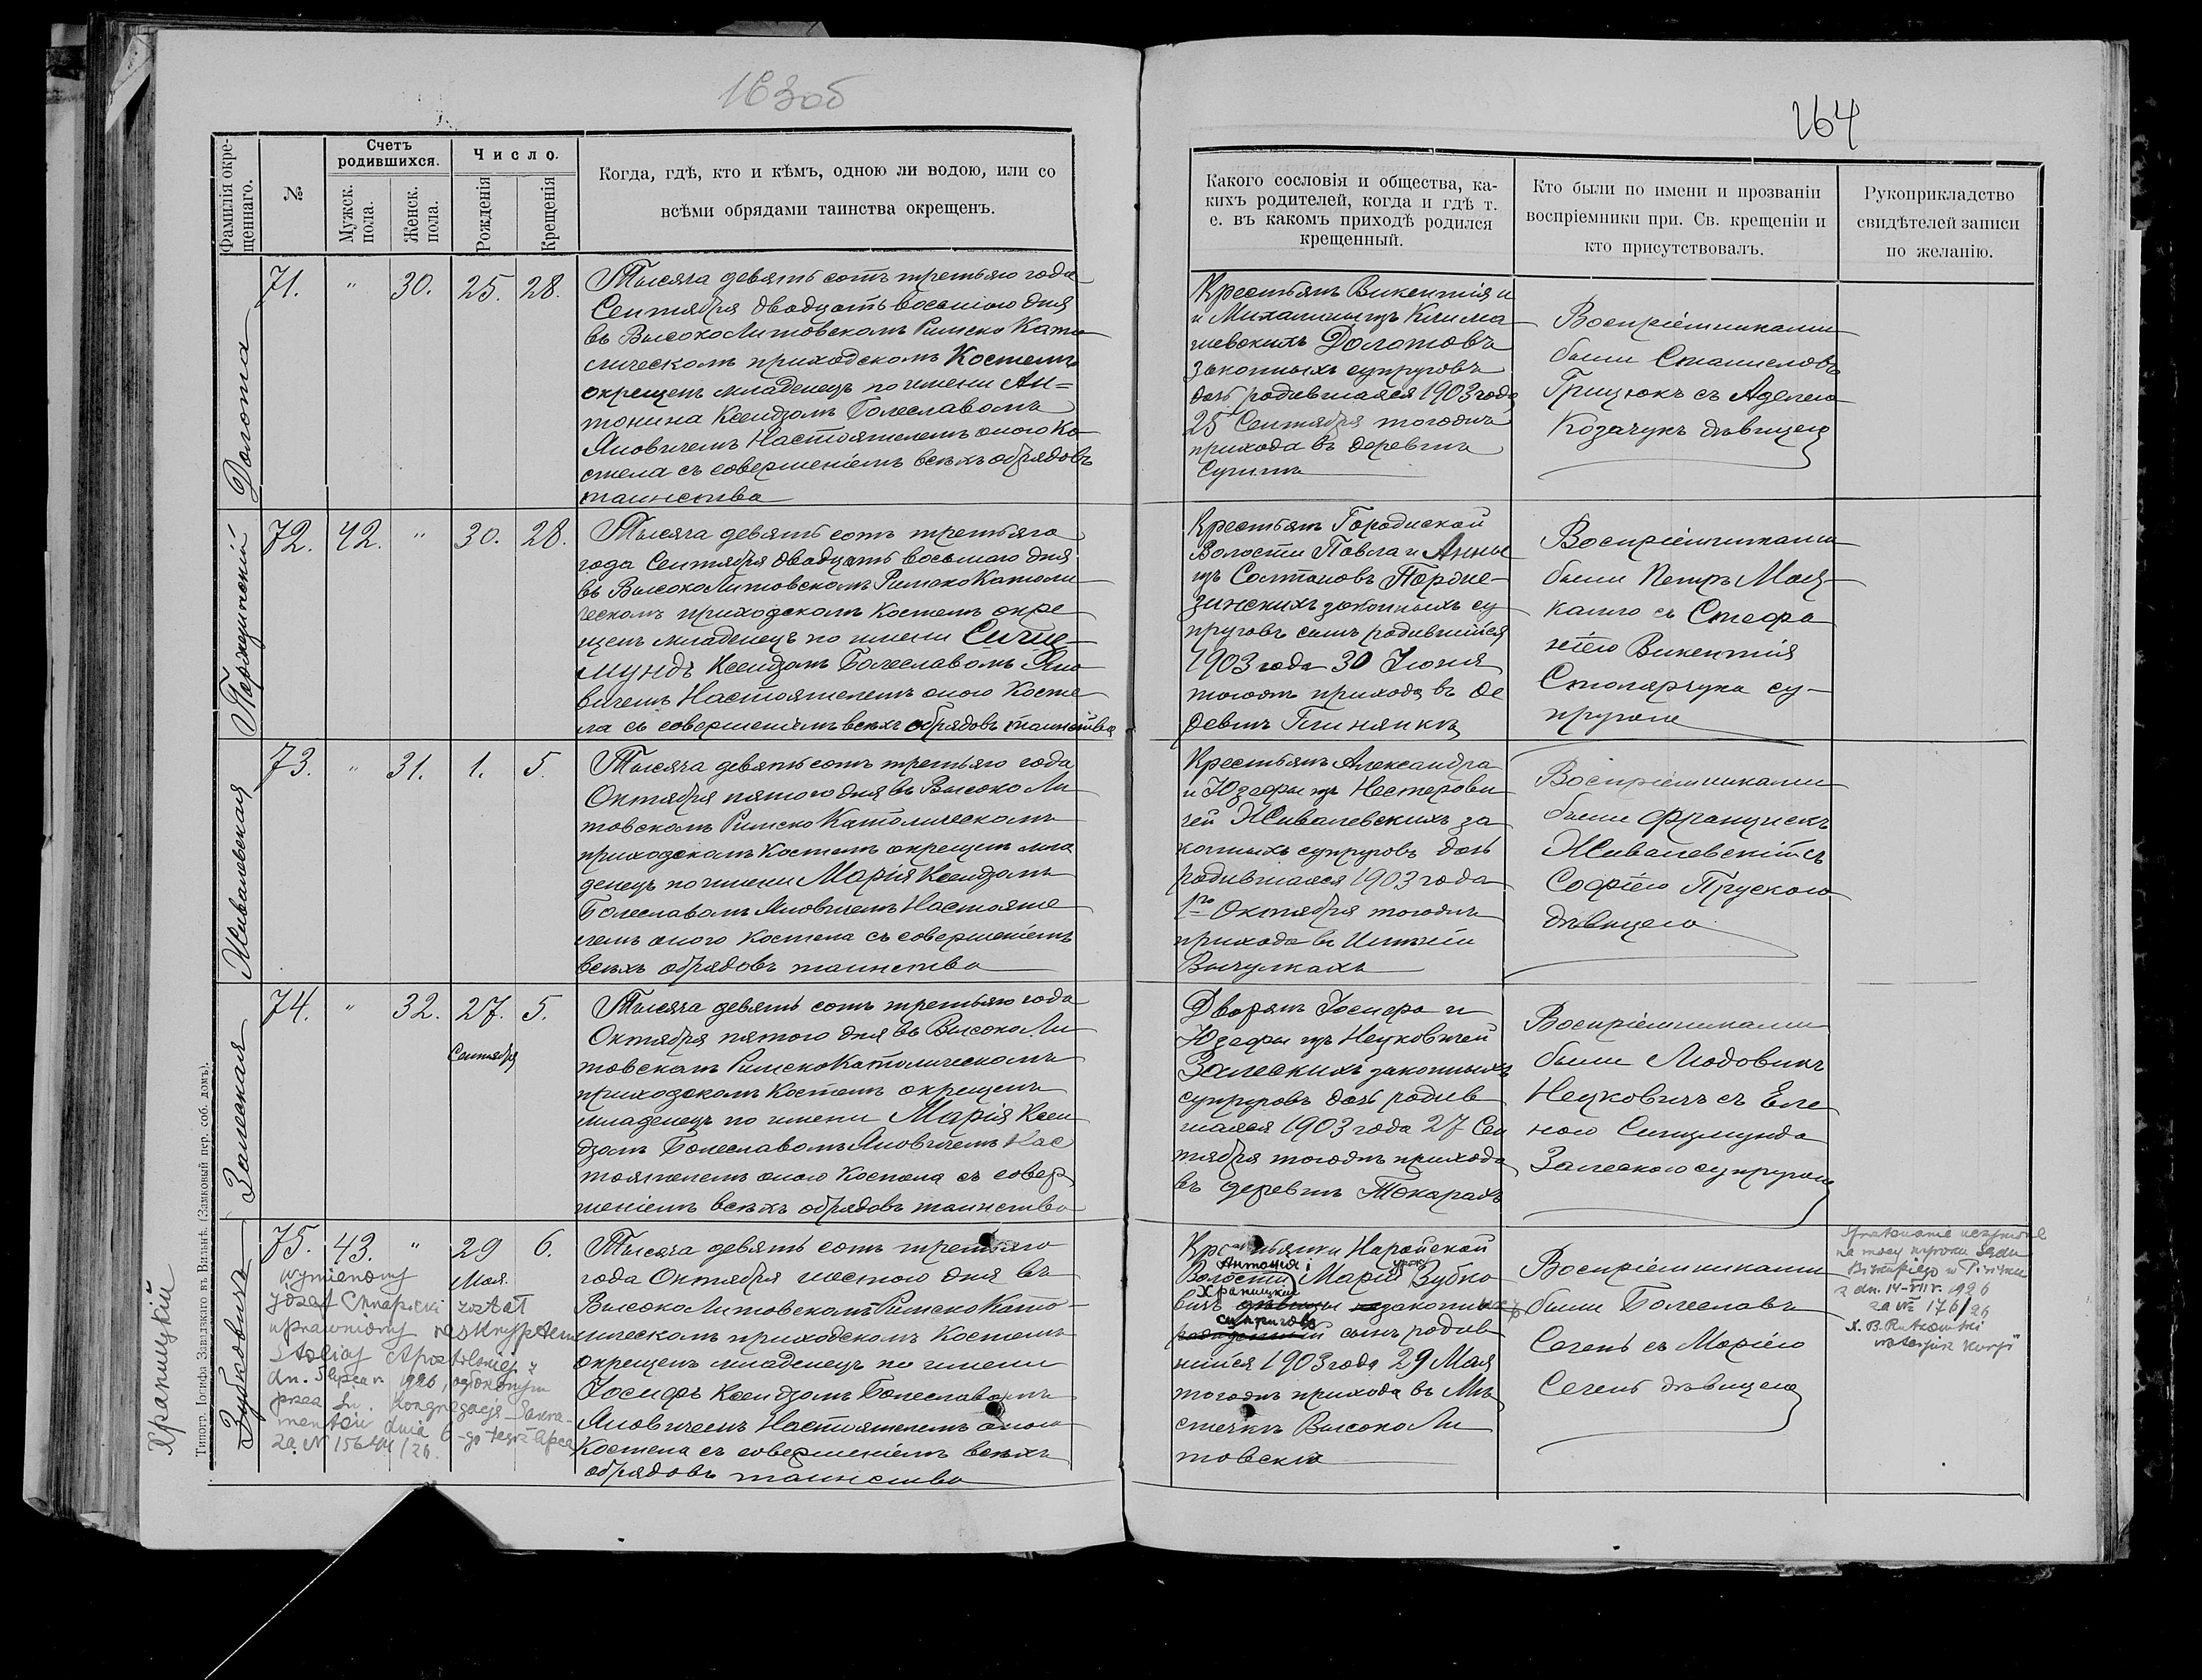 163об
164
Фамилія окре-
щеннаго.
№
Счетъ
родившихся.
Мужск.
пола.
Женск.
пола.
Число.
Рожденія
Крещенія
Когда, гдѣ, кто и кѣмъ, одною ли водою, или со
всѣми обрядами таинства окрещенъ.
Долота
71.
"
30.
25.
28.
Тысяча девять сотъ третьяго года
Сентября двадцать восьмого дня
въ ВысокоЛитовскомъ Римско Като
лическомъ приходскомъ Костелѣ
окрещенъ младенецъ по имени Ан=
тонина Ксендзомъ Болеславомъ
Яновичемъ Настоятелемъ оного Ко
стела съ совершеніемъ всѣхъ обрядовъ
таинства
72.
42.
"
30.
28.
Тысяча девять сотъ третьяго
года Сентября двадцать восьмаго дня
въ ВысокоЛитовскомъ РимскоКатоли
ческомъ приходскомъ Костелѣ окре
щенъ младенецъ по имени Сигиз-
мундъ Ксендзомъ Болеславомъ Яно
вичемъ Настоятелемъ оного Косте
ла съ совершеніемъ всѣхъ обрядовъ таинства
Живалевская
73.
"
31.
1.
5.
Тысяча девять сотъ третьяго года
Октября пятого дня въ Высоко Ли
товскомъ Римско Католическомъ
приходскомъ Костелѣ окрещенъ мла
денецъ по имени Марія Ксендзомъ
Болеславомъ Яновичемъ Настояте
лемъ оного Костела съ совершеніемъ
всѣхъ обрядовъ таинства
Залеская
74.
"
32.
27.
Сентября
5.
Тысяча девять сотъ третьяго года
Октября пятого дня въ Высоко Ли
товскомъ РимскоКатолическомъ
приходскомъ Костелѣ окрещенъ
младенецъ по имени Марія Ксен
дзомъ Болеславомъ Яновичемъ Нас
тоятелемъ оного Костела съ совер
шеніемъ всѣхъ обрядовъ таинства
Храпицкій
Зубковичъ
75.
43.
"
29
Мая.
6.
Wymieniony
Józef Chrapicki został
uprawniony reskryptem
Stolicy Apostolskiej z
dn. 5 lipca r. 1926,
przez Św. Kongregację Sakra-
mentów dnia 6-go tegoż lipca
za N 15644/26.
Тысяча девять сотъ третьяго
года Октября шестого дня въ
ВысокоЛитовскомъ РимскоКато-
лическомъ приходскомъ Костелѣ
окрещенъ младенецъ по имени
Іосифъ Ксендзомъ Болеславомъ
Яновичемъ Настоятелемъ оного
Костела съ совершеніемъ всѣхъ
обрядовъ таинства
Типогр. Іосифа Завадзкаго въ Вильнѣ. (Замковый пер. соб. домъ).
Какого сословія и общества, ка-
кихъ родителей, когда и гдѣ т.
е. въ какомъ приходѣ родился
крещенный.
Кто были по имени и прозванію
воспріемники при. Св. крещеніи и
кто присутствовалъ.
Рукоприкладство
свидѣтелей записи
по желанію.
Крестьянъ Викентія и
и Михалины изъ Клима
шевскихъ Долотовъ
законныхъ супруговъ
дочь родившаяся 1903 года
25 Сентября тогожъ
прихода въ деревнѣ
Воспріемниками
были Станиславъ
Грицюкъ съ Аделею
Козачукъ дѣвицею
Крестьянъ Городиской
Волости Павла и Анны
изъ Солтановъ
законныхъ су
пруговъ сынъ родившійся
1903 года 30 Іюня
тогожъ прихода въ де
ревнѣ
Воспріемниками
были Петръ
съ Стефа
ніею Викентія
Столярчука су-
пругою
Крестьянъ Александра
и Юзефы изъ Нестерови
чей Живалевскихъ за
конныхъ супруговъ дочь
родившаяся 1903 года
1го Октября тогожъ
прихода въ Имѣніи
Вычулкахъ
Воспріемниками
были Францискъ
Живалевскій съ
Софіею Прускою
дѣвицею
Дворянъ Іосифа и
Юзефы изъ Нецковичей
Залескихъ законныхъ
супруговъ дочь родив
шаяся 1903 года 27 Сен
тября тогожъ прихода
въ деревнѣ Токарахъ
Воспріемниками
были Людовикъ
Нецковичъ съ Еле
ною Сигизмунда
Залеского супругою
Крестьянки Наройской
Антонія і
Волости Маріи урож Зубко
Храпицкихъ
вичъ дѣвицы незаконны
супруговъ
сынъ родив
шійся 1903 года 29 Мая
тогожъ прихода въ Мѣ
стечкѣ Высоко Ли
товскѣ
Воспріемниками
были Болеславъ
Сегень съ Маріею
Сегень дѣвицею
na mocy wyroku Sądu
Biskupiego w Pińsku
z dn. 14-VIII r. 1926
za № 176/26
X. B. Rutkowski